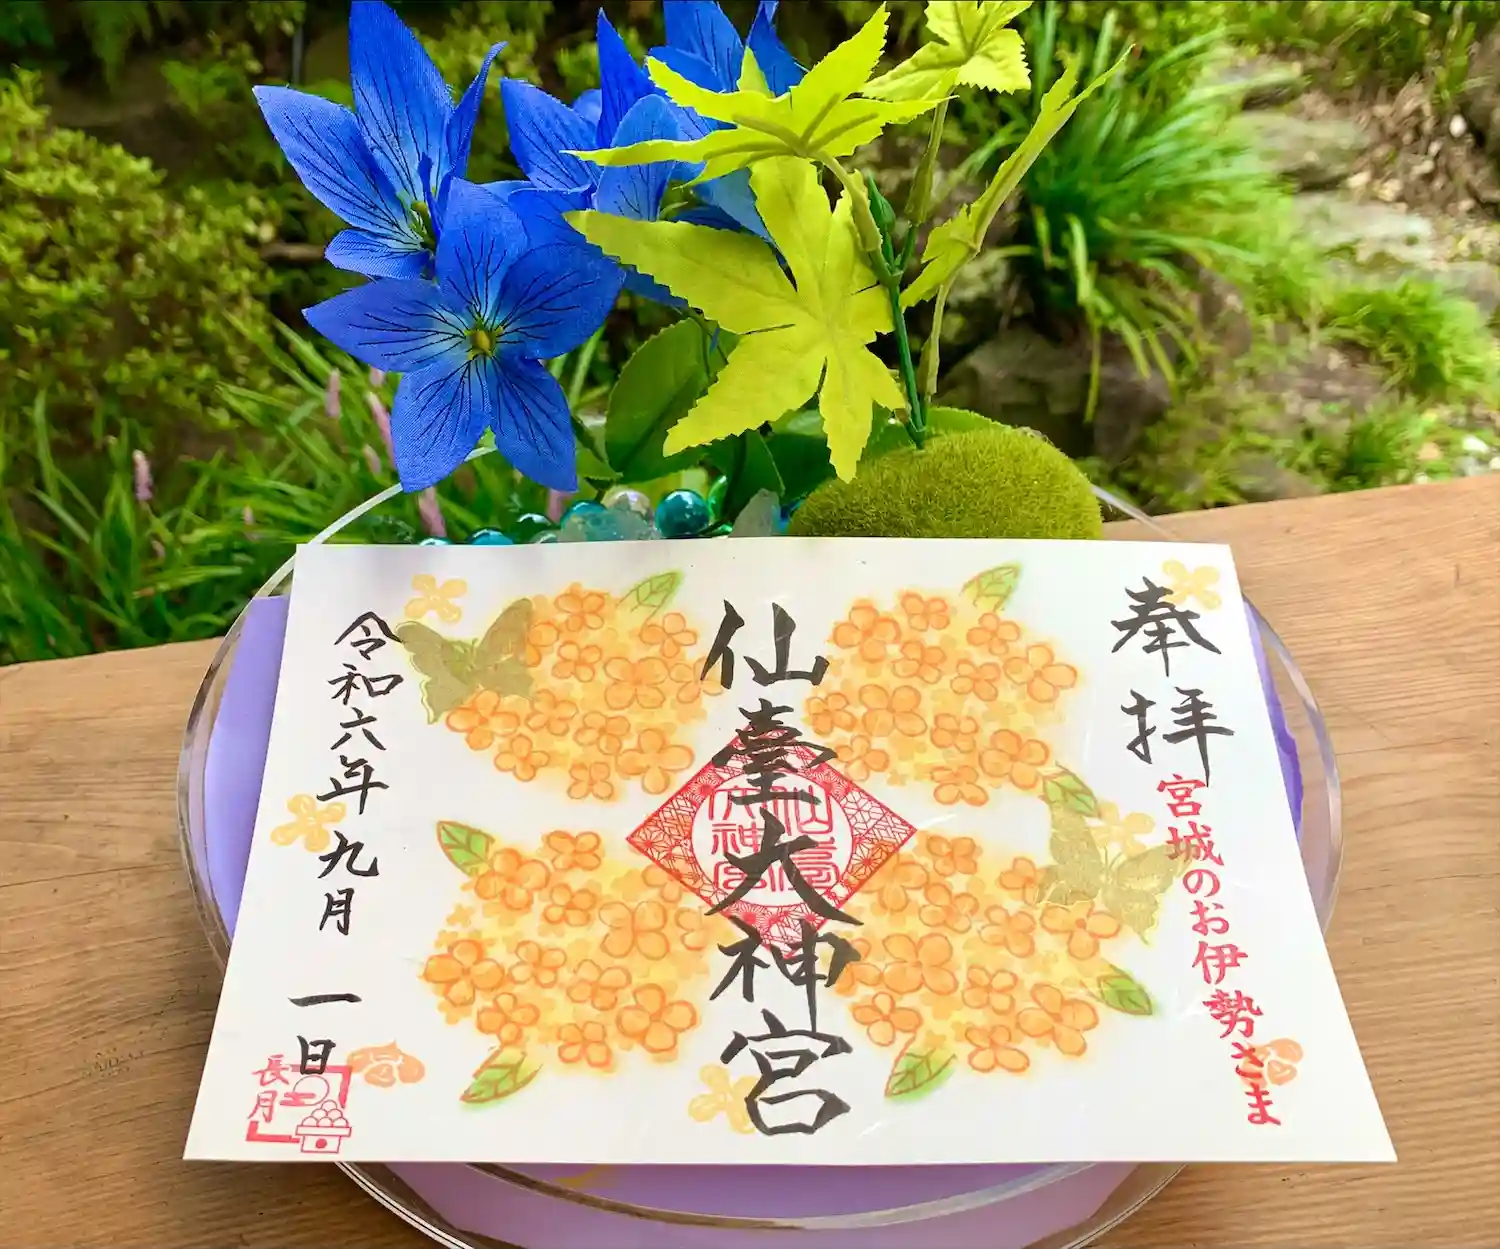 奉拝
宮城のお伊勢さま
仙臺大神宮
仙臺
大神宮
令和六年九月一日
長月